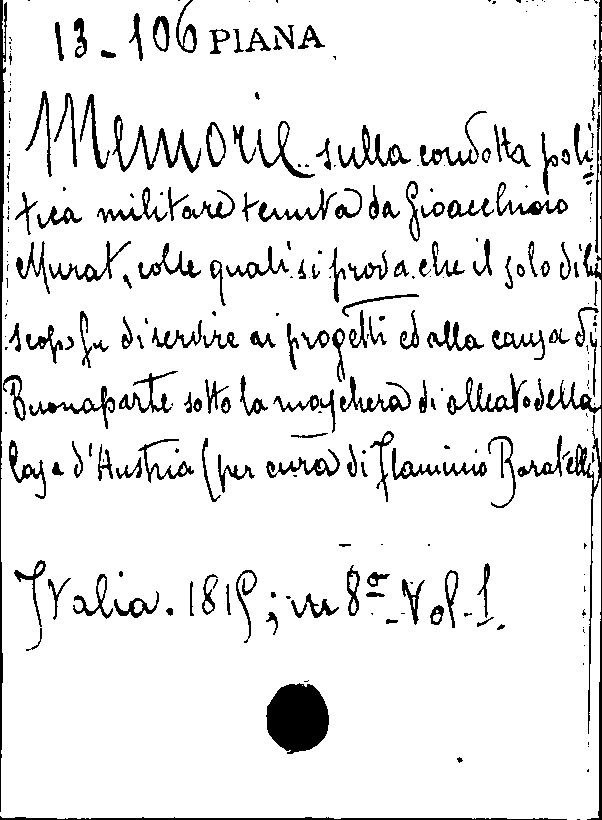 13-106 PIANA
Memorie sulla condotta poli
tica militare tenuta da Gioacchino
Murat, colle quali si prova che il solo di lui
scopo fu di servire ai progetti ed alla causa di
Buonaparte sotto la maschera di alleato della
Casa d'Austria (per cura di Flaminio Baratelli)
Italia. 1815; in 8º-Vol-1.